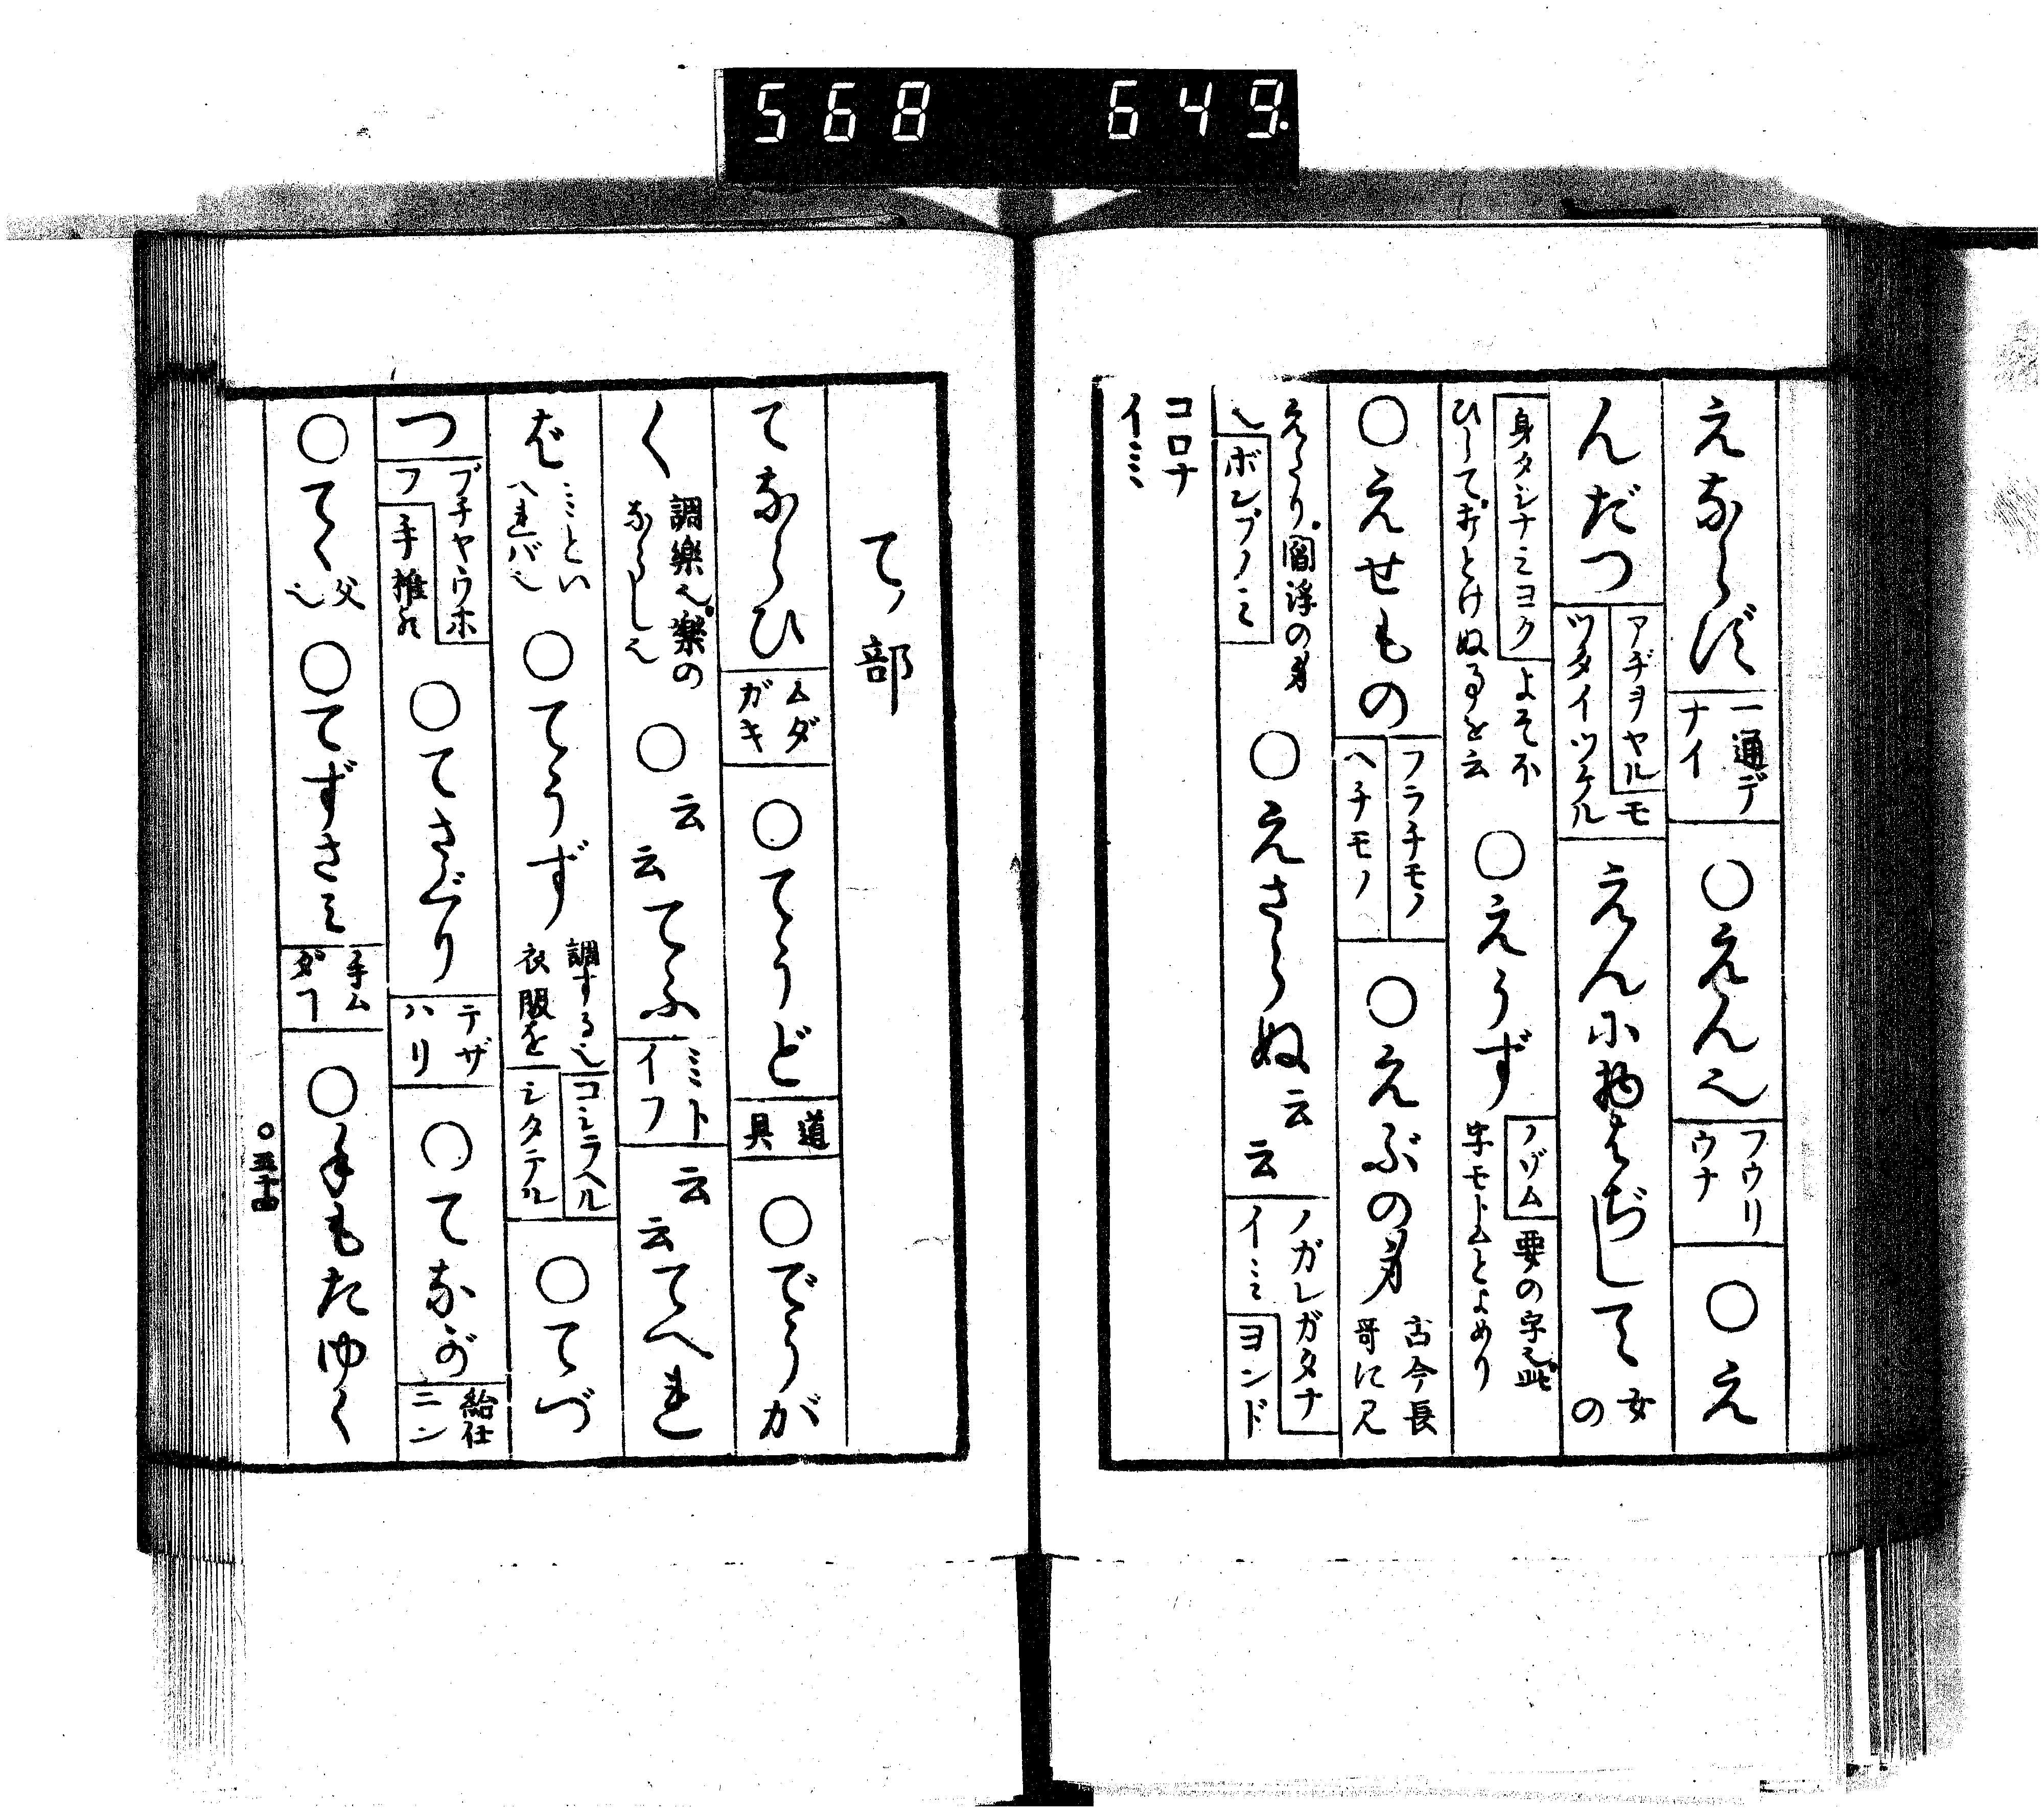 568 649.
えならず 一通デナイ ○えんへ フウリウナ ○え
んだつ アヂヲヤルモツタイツケル えん小物はぢして 女の
身タシナミヨク よそ不
ひしておとけぬるを云 ○えうず ノゾム 要の字也此字モトムとよめり
○えせもの フラチモノヘチモノ ○えぶの身 古今長哥に見
えたり。閻浮の身
也 ボンブノミ ○えさらぬ云云 ノガレガタナイミ ヨンド
コロナイミ
て部
てならひ ムダガキ ○てうど 道具 ○でうが
く 調樂也。楽のならし也 ○云云てふ ミトイフ 云云てへれ
ば ミといへればへ也 ○てうず 調する也衣服を コシラヘルシタテル ○てづ
つ ブチヤウホフ 手 ○てさぐり テザハリ ○てなが 給仕ニン
○てゝ 父也 ○てずさみ 手ムダ ○手もたゆく
○五十四